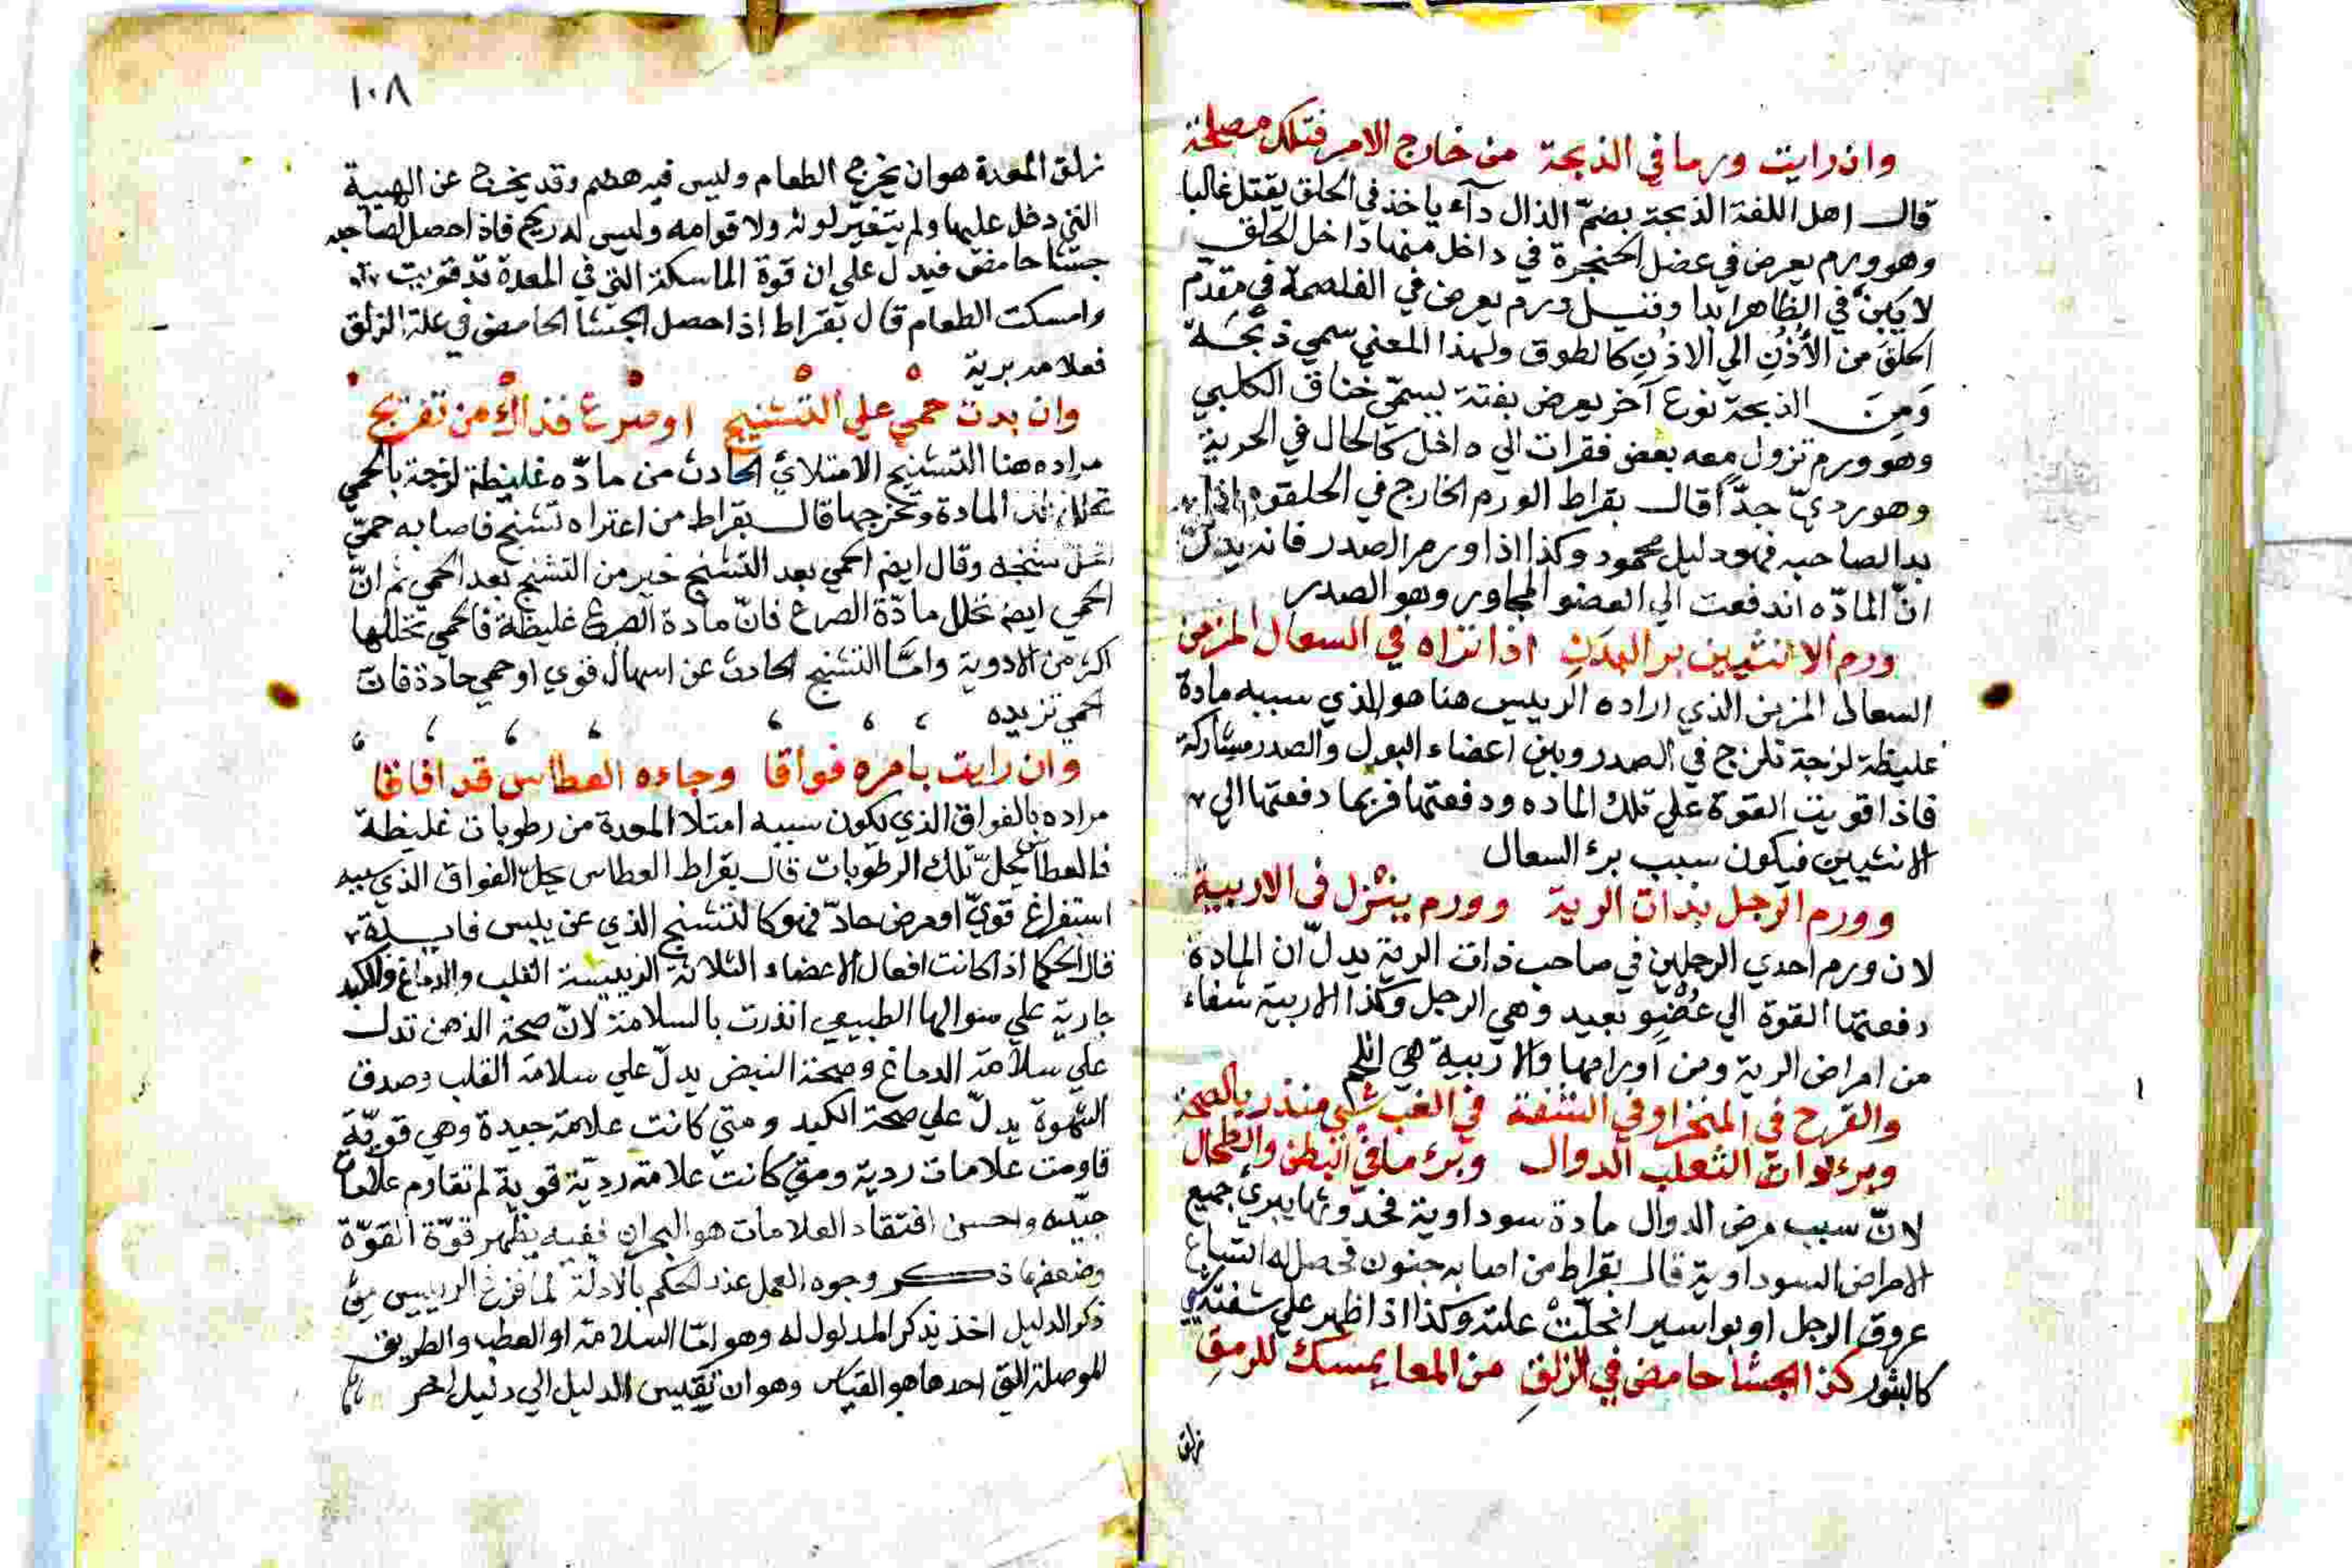 وان رايت ورما في الذبحة من خارج الامر فتلك مصلحة
قال اهل اللغة الذبحة بضمّ الذال دآء ياخذ في الحلق يقتل غالبا
وهو ورم يعرض في عضل الحنجرة في داخل منها داخل الحلق
لا يبن في الظاهر ابدا وقيل ورم يعرض في الغلصمة في مقدّم
الحلق من الأُذُنِ الي الاذنِ كالطوق ولهذا المعني سمي ذبحة
وَمِنَ الذبحة نوع آخر يعرض بغتة يسمّي خناق الكلبي
وهو ورم تزول معه بعض فقرات الي داخل كالحال في الحربة
وهو رديّ جدّا قال بقراط الورم الخارج في الحلقوم اذا
بدا لصاحبه فهو دليل محمود وكذا اذا ورم الصدر فانه يدلّ
انّ المادّه اندفعت الي العضو المجاور وهو الصدر
ورم الانثيين برالبدنِ اذا تراه في السعال المزمن
السعال المزمن الذي اراده الرييس هنا هو الذي سببه مادة
غليظة لزجة تلزج في الصدر وبين اعضاء البول والصدر مشاركة
فاذا قويت القوة علي تلك الماده ودفعتها فربما دفعتها الي
الانثيين فيكون سبب برء السعال
وورم الرجل بذات الرية وورم ينزل في الاربية
لان ورم احدي الرجلين في صاحب ذات الرية يدلّ ان المادة
دفعتها القوة الي عُضوٍ بعيد وهي الرجل وكذا الاربية شفاء
من امراض الرية ومن اورامها والاربية هي
والقرح في المنخر او في الشفة في الغب شي منذر بالصحة
وبرء ذوات الثعلب الدوال وبرء ما في البطن والطحال
لانّ سبب مرض الدوال مادة سوداوية فحدوثها يبري جميع
الامراض السوداوية قال بقراط من اصابه جنون فحصل له اتساع
عروق الرجل او بواسير انحلّت علته وكذا اذا ظهر علي شفته شي
كالبثور كذ الجشا حامض في الزلقِ من المعا يمسك للرمقِ
زلق
١٠٨
زلق المعدة هو ان يخرج الطعام وليس فيه هضم وقد يخرج عن الهيية
التي دخل عليها ولم يتغير لونه ولا قوامه وليس له ريح فاذا حصل لصاحبه
جشا حامض فيدل علي ان قوة الماسكة التي في المعدة قد قويت
وامسكت الطعام قال بقراط اذا حصل الجشا الحامض في علة الزلق
فعلامه برية
وان بدت حمي علي التشنيج او صرع فذاك من تفريج
مراده هنا التشنيج الامتلائي الحادث من مادّه غليظة لزجة بالحمي
تحلل المادة وتخرجها قال بقراط من اعتراه تشنج فاصابه حميّ
انحل تشنجه وقال ايضا الحمي بعد التشنج خير من التشنج بعد الحمي ثم انّ
الحمي ايضا تحلل مادّة الصرع فانّ مادة الصرع غليظة فالحمي تحللها
اكثر من الادوية وامّا التشنج الحادث عن اسهال قوي او حمي حادة فانّ
الحمي تزيده
وان رايت بامره فواقا وجاءه العطاس قد افاقا
مراده بالفواق الذي يكون سببه امتلا المعدة من رطوبات غليظة
فالعطاس يحلّ تلك الرطوبات قال بقراط العطاس يحلّ الفواق الذي سببه
استفراغ قويّ او مرض حادّ فهو كالتشنج الذي عن يبس
قال الحكما اذا كانت افعال الاعضاء الثلاثة الرييسة القلب والدماغ والكبد
جارية علي منوالها الطبيعي انذرت بالسلامة لانّ صحة الذهن تدل
علي سلامة الدماغ وصحة النبض يدلّ علي سلامة القلب وصدق
الشهوة يدلّ علي صحة الكبد ومتي كانت علامة جيدة وهي قويّة
قاومت علامات ردية ومتي كانت علامة رديّة قوية لم تقاوم علامات
جيّده واحسن افتقاد العلامات هو البحران ففيه يظهر قوّة القوّة
وضعفها ذكر وجوه العمل عند الحكم بالادلّة لما فرغ الرييس من
ذكر الدليل اخذ يذكر المدلول له وهو امّا السلامة او العطب والطريق
الموصلة التي احدها هو القياس وهو ان يقيس الدليل الي دليل اخر